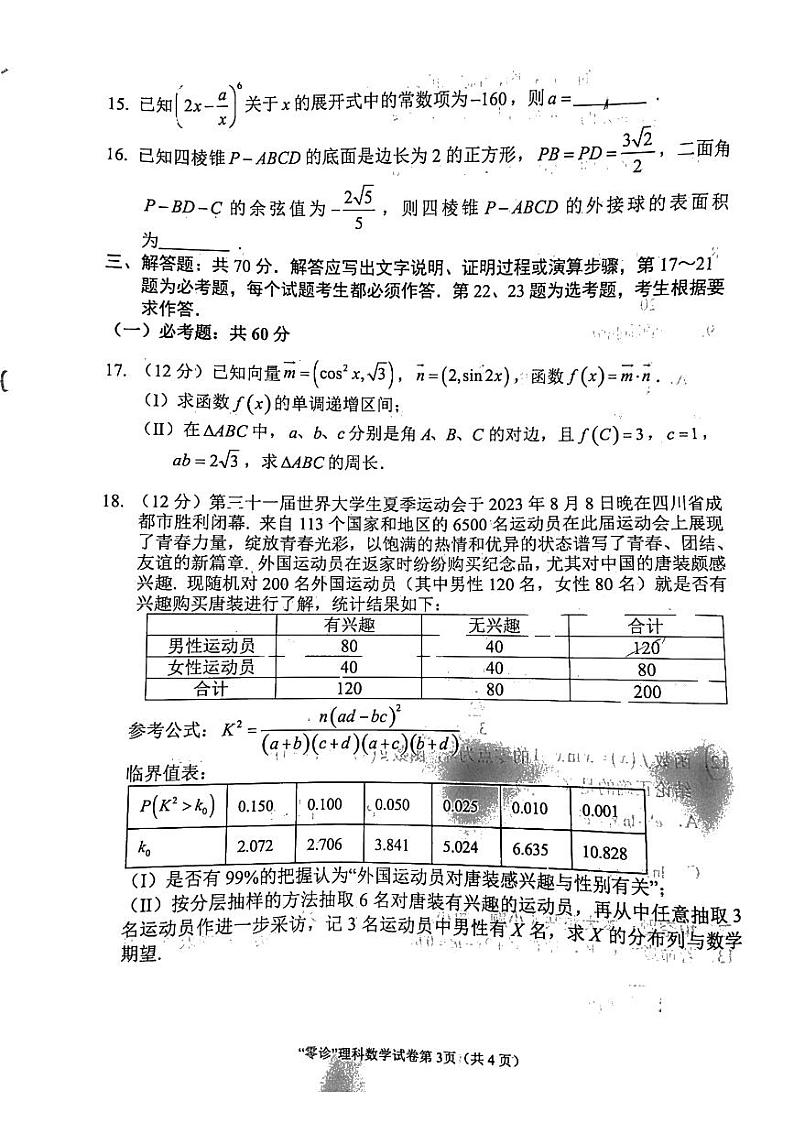 15. 已知(2x-a/x)⁶关于x的展开式中的常数项为-160，则a=______．
16. 已知四棱锥P-ABCD的底面是边长为2的正方形，PB=PD=3√2/2，二面角
P-BD-C的余弦值为-2√5/5，则四棱锥P-ABCD的外接球的表面积
为______．
三、解答题：共70分．解答应写出文字说明、证明过程或演算步骤，第17～21
题为必考题，每个试题考生都必须作答．第22、23题为选考题，考生根据要
求作答．
（一）必考题：共60分
17. （12分）已知向量m⃗=(cos²x,√3)，n⃗=(2,sin2x)，函数f(x)=m⃗·n⃗．
(Ⅰ) 求函数f(x)的单调递增区间；
(Ⅱ) 在△ABC中，a、b、c分别是角A、B、C的对边，且f(C)=3，c=1，
ab=2√3，求△ABC的周长．
18. （12分）第三十一届世界大学生夏季运动会于2023年8月8日晚在四川省成
都市胜利闭幕．来自113个国家和地区的6500名运动员在此届运动会上展现
了青春力量，绽放青春光彩，以饱满的热情和优异的状态谱写了青春、团结、
友谊的新篇章．外国运动员在返家时纷纷购买纪念品，尤其对中国的唐装颇感
兴趣．现随机对200名外国运动员（其中男性120名，女性80名）就是否有
兴趣购买唐装进行了解，统计结果如下：
有兴趣 无兴趣 合计
男性运动员 80 40 120
女性运动员 40 40 80
合计 120 80 200
参考公式：K²=n(ad-bc)²/((a+b)(c+d)(a+c)(b+d))
临界值表：
P(K²>k₀) 0.150 0.100 0.050 0.025 0.010 0.001
k₀ 2.072 2.706 3.841 5.024 6.635 10.828
(Ⅰ) 是否有99%的把握认为“外国运动员对唐装感兴趣与性别有关”；
(Ⅱ) 按分层抽样的方法抽取6名对唐装有兴趣的运动员，再从中任意抽取3
名运动员作进一步采访，记3名运动员中男性有X名，求X的分布列与数学
期望．
“零诊”理科数学试卷第3页（共4页）